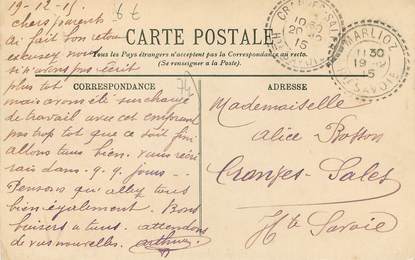 19-12-15
chers parents
ai fait bon retour
excusez nous
si n'avons pas écrit
plus tôt
mais avons été surchargé
de travail avec cet emprunt
pas trop tôt que ce soit fini
allons tous bien. vous
dans q.q. jours
Pensons que allez tous
bien également. Bons
baisers a tous. attendons
de vos nouvelles. arthur
CARTE POSTALE
Tous les Pays étrangers n'acceptent pas la Correspondance au recto.
(Se renseigner à la Poste).
CORRESPONDANCE
ADRESSE
Mademoiselle
Alice Bosson
Cranves-Sales
Hte Savoie
20-12
15
MARLIOZ
11 30
19-12
15
Hte SAVOIE